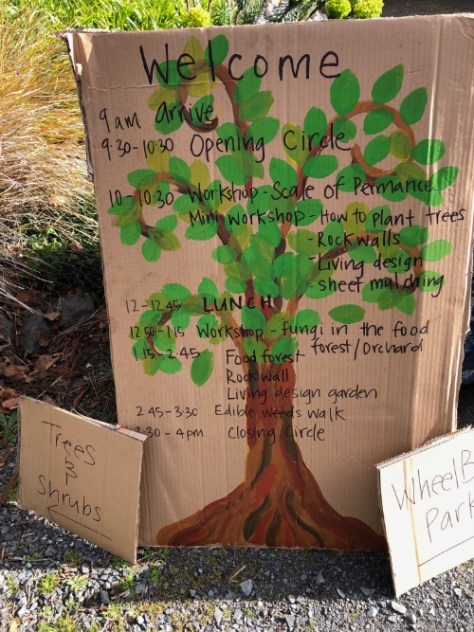 Welcome
9am arrive
9.30-10.30 Opening Circle
10-10.30 Workshop - Scale of Permanance
Mini Workshop - How to plant trees
- Rock walls
- Living design
- sheet mulching
12-12.45 LUNCH
12.50-1.15 Workshop - fungi in the food
forest/Orchard
1.15-2.45 Food forest
Rock wall
Living design garden
2.45-3.30 Edible weeds walk
3.30-4pm Closing Circle
Trees
&
Shrubs
WheelB
Park